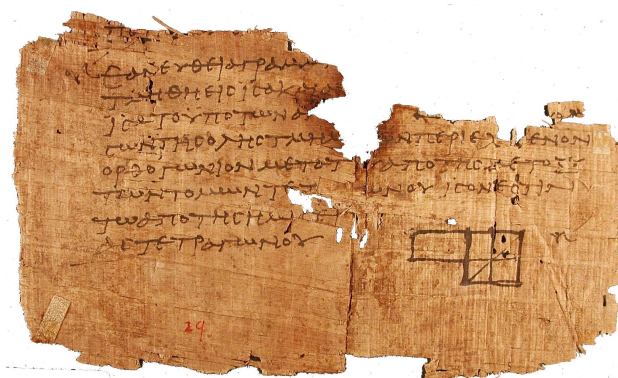 ЄΑΝ ЄΥΘЄΙΑ ΓΡΑΜ
ΤΜΗΘΗ ЄΙϹ ΙϹΑ ΚΑΙ
ΙϹΑ ΤΟ ΥΠΟ ΤΩΝ Α
ϹΩΝ ΤΗϹ ΟΛΗϹ ΤΜΗ ΩΝ ΠЄΡΙЄΧΟΜЄΝΟΝ
ΟΡΘΟΓΩΝΙΟΝ ΜЄΤΑ ΤΟΥ ΑΠΟ ΤΗϹ ΜЄΤΟΞΥ
ΤΩΝ ΤΟΜΩΝ ΤЄΤ ΩΝΟΥ ΙϹΟΝ ЄϹΤΙΝ
ΤΩ ΑΠΟ ΤΗϹ ΗΜΙϹЄΙ
ΑϹ ΤЄΤΡΑΓΩΝΟΥ
29